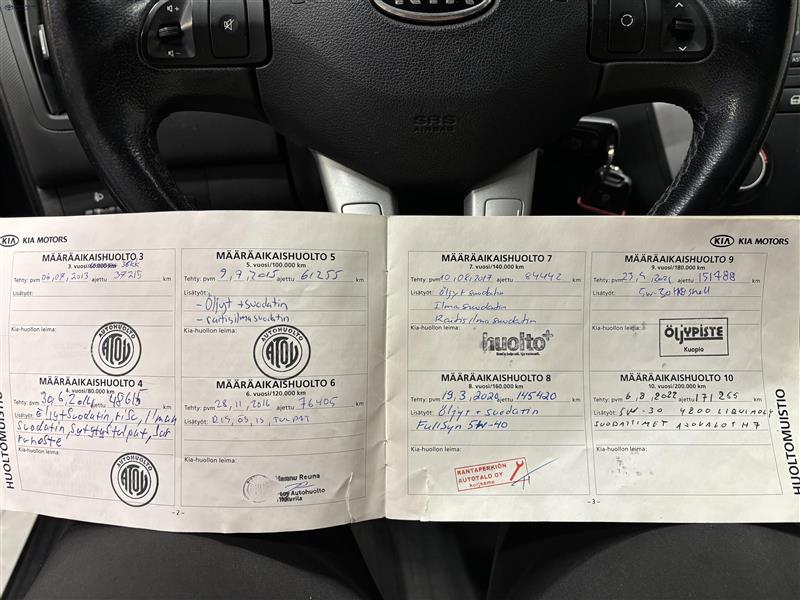 KIA
SRS
AIRBAG
KIA KIA MOTORS
MÄÄRÄAIKAISHUOLTO 3
3. vuosi/60.000 km 36kk
Tehty: pvm 06,07,2013 ajettu 37215 km
Lisätyöt:
Kia-huollon leima:
AUTOHUOLTO
MÄÄRÄAIKAISHUOLTO 4
4. vuosi/80.000 km
Tehty: pvm 30,6,2014 ajettu 48615 km
Lisätyöt: Öljyt+Suodatin,
Suodatin, Sytytystulpat,
ruhoste
Kia-huollon leima:
AUTOHUOLTO
- 2 -
MÄÄRÄAIKAISHUOLTO 5
5. vuosi/100.000 km
Tehty: pvm 9,7,2015 ajettu 61255 km
Lisätyöt:
- Öljyt + suodatin
- raitisilmasuodatin
Kia-huollon leima:
AUTOHUOLTO
MÄÄRÄAIKAISHUOLTO 6
6. vuosi/120.000 km
Tehty: pvm 28,11,2016 ajettu 76405 km
Lisätyöt: TULPAT
Kia-huollon leima:
Hannu Reuna
Autohuolto
HUOLTOMUISTIO
MÄÄRÄAIKAISHUOLTO 7
7. vuosi/140.000 km
Tehty: pvm 10,08,2017 ajettu 84442 km
Lisätyöt: Öljyt+suodatin
Ilmasuodatin
Raitisilmasuodatin
Kia-huollon leima:
huolto+
MÄÄRÄAIKAISHUOLTO 8
8. vuosi/160.000 km
Tehty: pvm 19,3,2020 ajettu 145420 km
Lisätyöt: Öljyt + suodatin
FullSyn 5W-40
Kia-huollon leima:
RANTAPERKIÖN
AUTOTALO OY
korjaamo
- 3 -
KIA KIA MOTORS
MÄÄRÄAIKAISHUOLTO 9
9. vuosi/180.000 km
Tehty: pvm 23,4,2021 ajettu 151488 km
Lisätyöt: 5w-30 shell
Kia-huollon leima:
ÖLJYPISTE
Kuopio
MÄÄRÄAIKAISHUOLTO 10
10. vuosi/200.000 km
Tehty: pvm 6,8,2022 ajettu 171265 km
Lisätyöt: 5W-30 4200 LIQUIMOLY
SUODATTIMET AJOVALOT H7
Kia-huollon leima:
HUOLTOMUISTIO